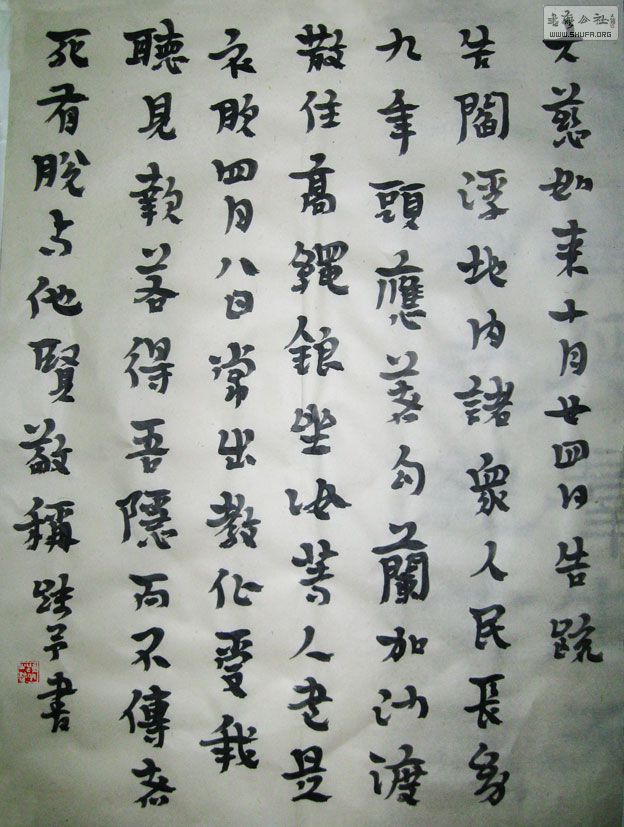 大慈如来十月廿四日告疏
告閻浮地内諸衆人民長多
九年頭應若勾蘭加沙渡
散住高繩銀坐汝苦人老是
哀欣四月八日常出教化愛我
聽見歎若得吾隱而不傳者
死有脫与他賢敬稱 書
書法公社
WWW.SHUFA.ORG